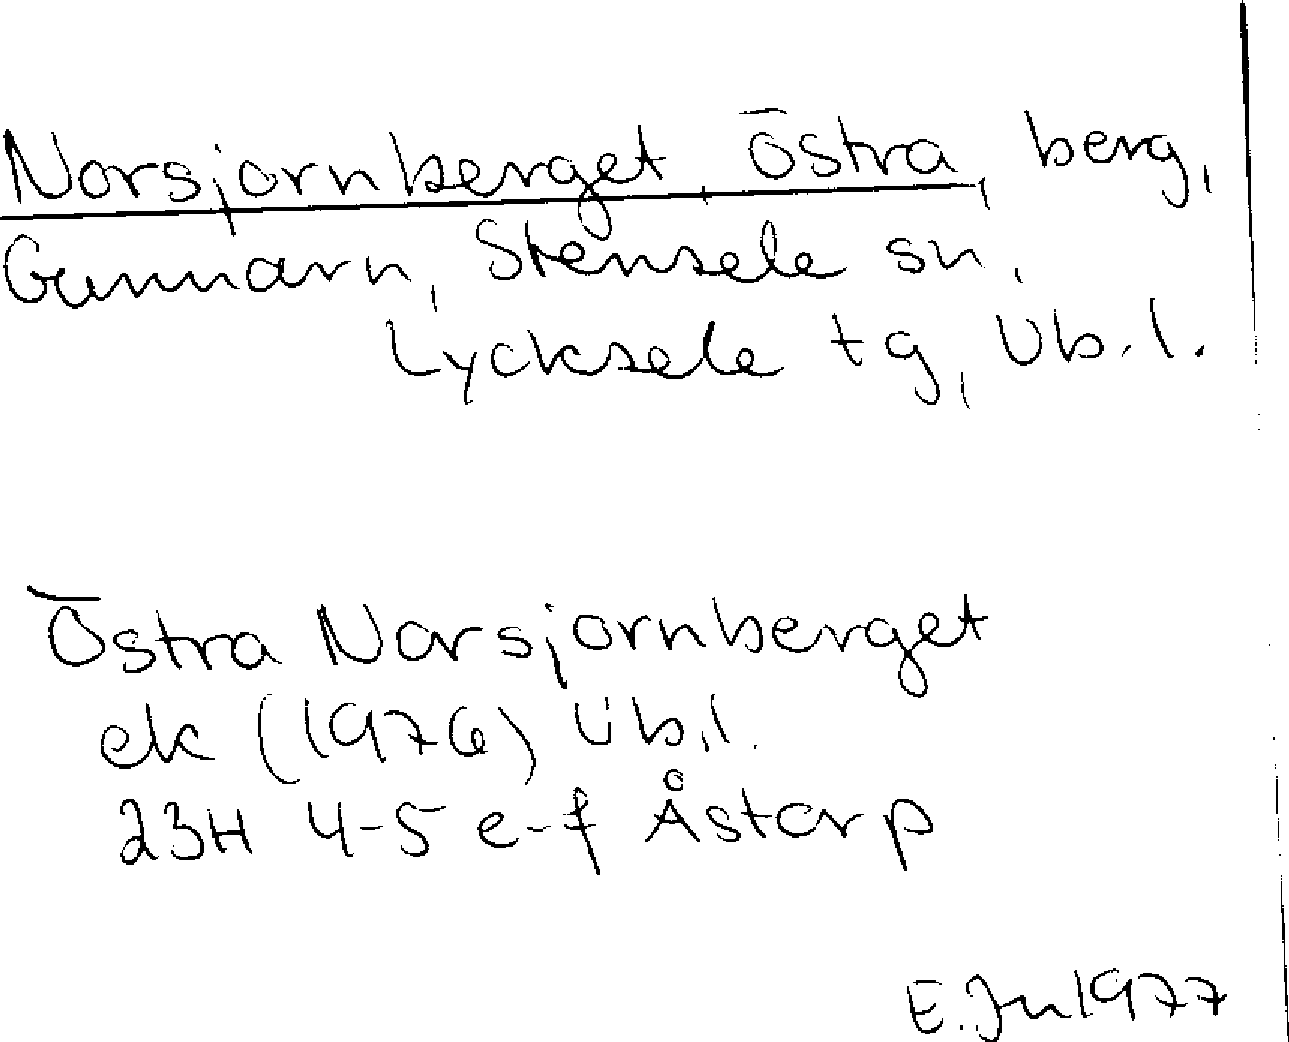 Norsjornberget, Östra, berg,
Gunnarn, Stensele sn,
Lycksele tg, Vb.l.
Östra Norsjornberget
ek (1976) Vb.l.
23H 4-5 e-f Åstorp
E.Jn 1977